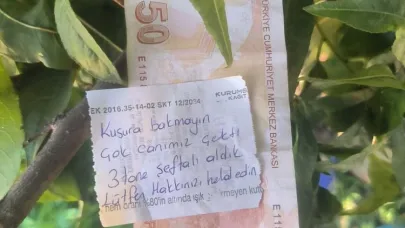 50
E 115
TÜRKİYE CUMHURİYET MERKEZ BANKASI
EK 2016.35-14-02 SKT 12/2034
KURUMS
KART
Kusura bakmayın
Çok canımız çekti
3 tane şeftali aldık
Lütfen Hakkınızı helal edin
%80'in altında ışık
meyen kut
E 115